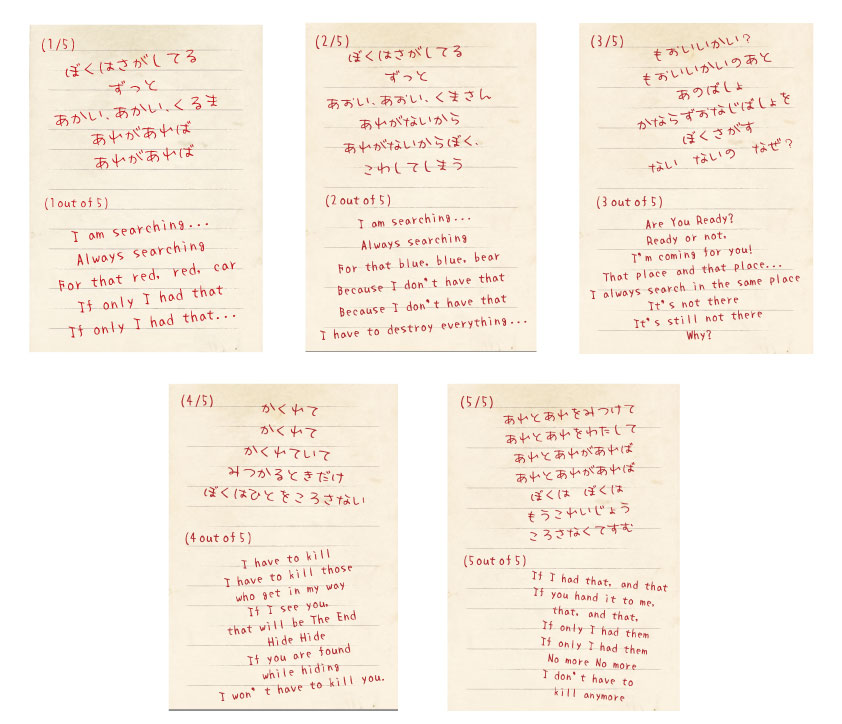 (1/5)
ぼくはさがしてる
ずっと
あかい、あかい、くるま
あれがあれば
あれがあれば
(1 out of 5)
I am searching...
Always searching
For that red, red, car
If only I had that
If only I had that...
(2/5)
ぼくはさがしてる
ずっと
あおい、あおい、くまさん
あれがないから
あれがないからぼく、
こわしてしまう
(2 out of 5)
I am searching...
Always searching
For that blue, blue, bear
Because I don't have that
Because I don't have that
I have to destroy everything...
(3/5)
もおいいかい?
もおいいかいのあと
あのばしょ
かならずおなじばしょを
ぼくさがす
ない ないの なぜ?
(3 out of 5)
Are You Ready?
Ready or not,
I'm coming for you!
That place and that place...
I always search in the same place
It's not there
It's still not there
Why?
(4/5)
かくれて
かくれて
かくれていて
みつかるときだけ
ぼくはひとをころさない
(4 out of 5)
I have to kill
I have to kill those
who get in my way
If I see you,
that will be The End
Hide Hide
If you are found
while hiding
I won't have to kill you.
(5/5)
あれとあれをみつけて
あれとあれをわたして
あれとあれがあれば
あれとあれがあれば
ぼくは ぼくは
もうこれいじょう
ころさなくてすむ
(5 out of 5)
If I had that, and that
If you hand it to me,
that, and that,
If only I had them
If only I had them
No more No more
I don't have to
kill anymore